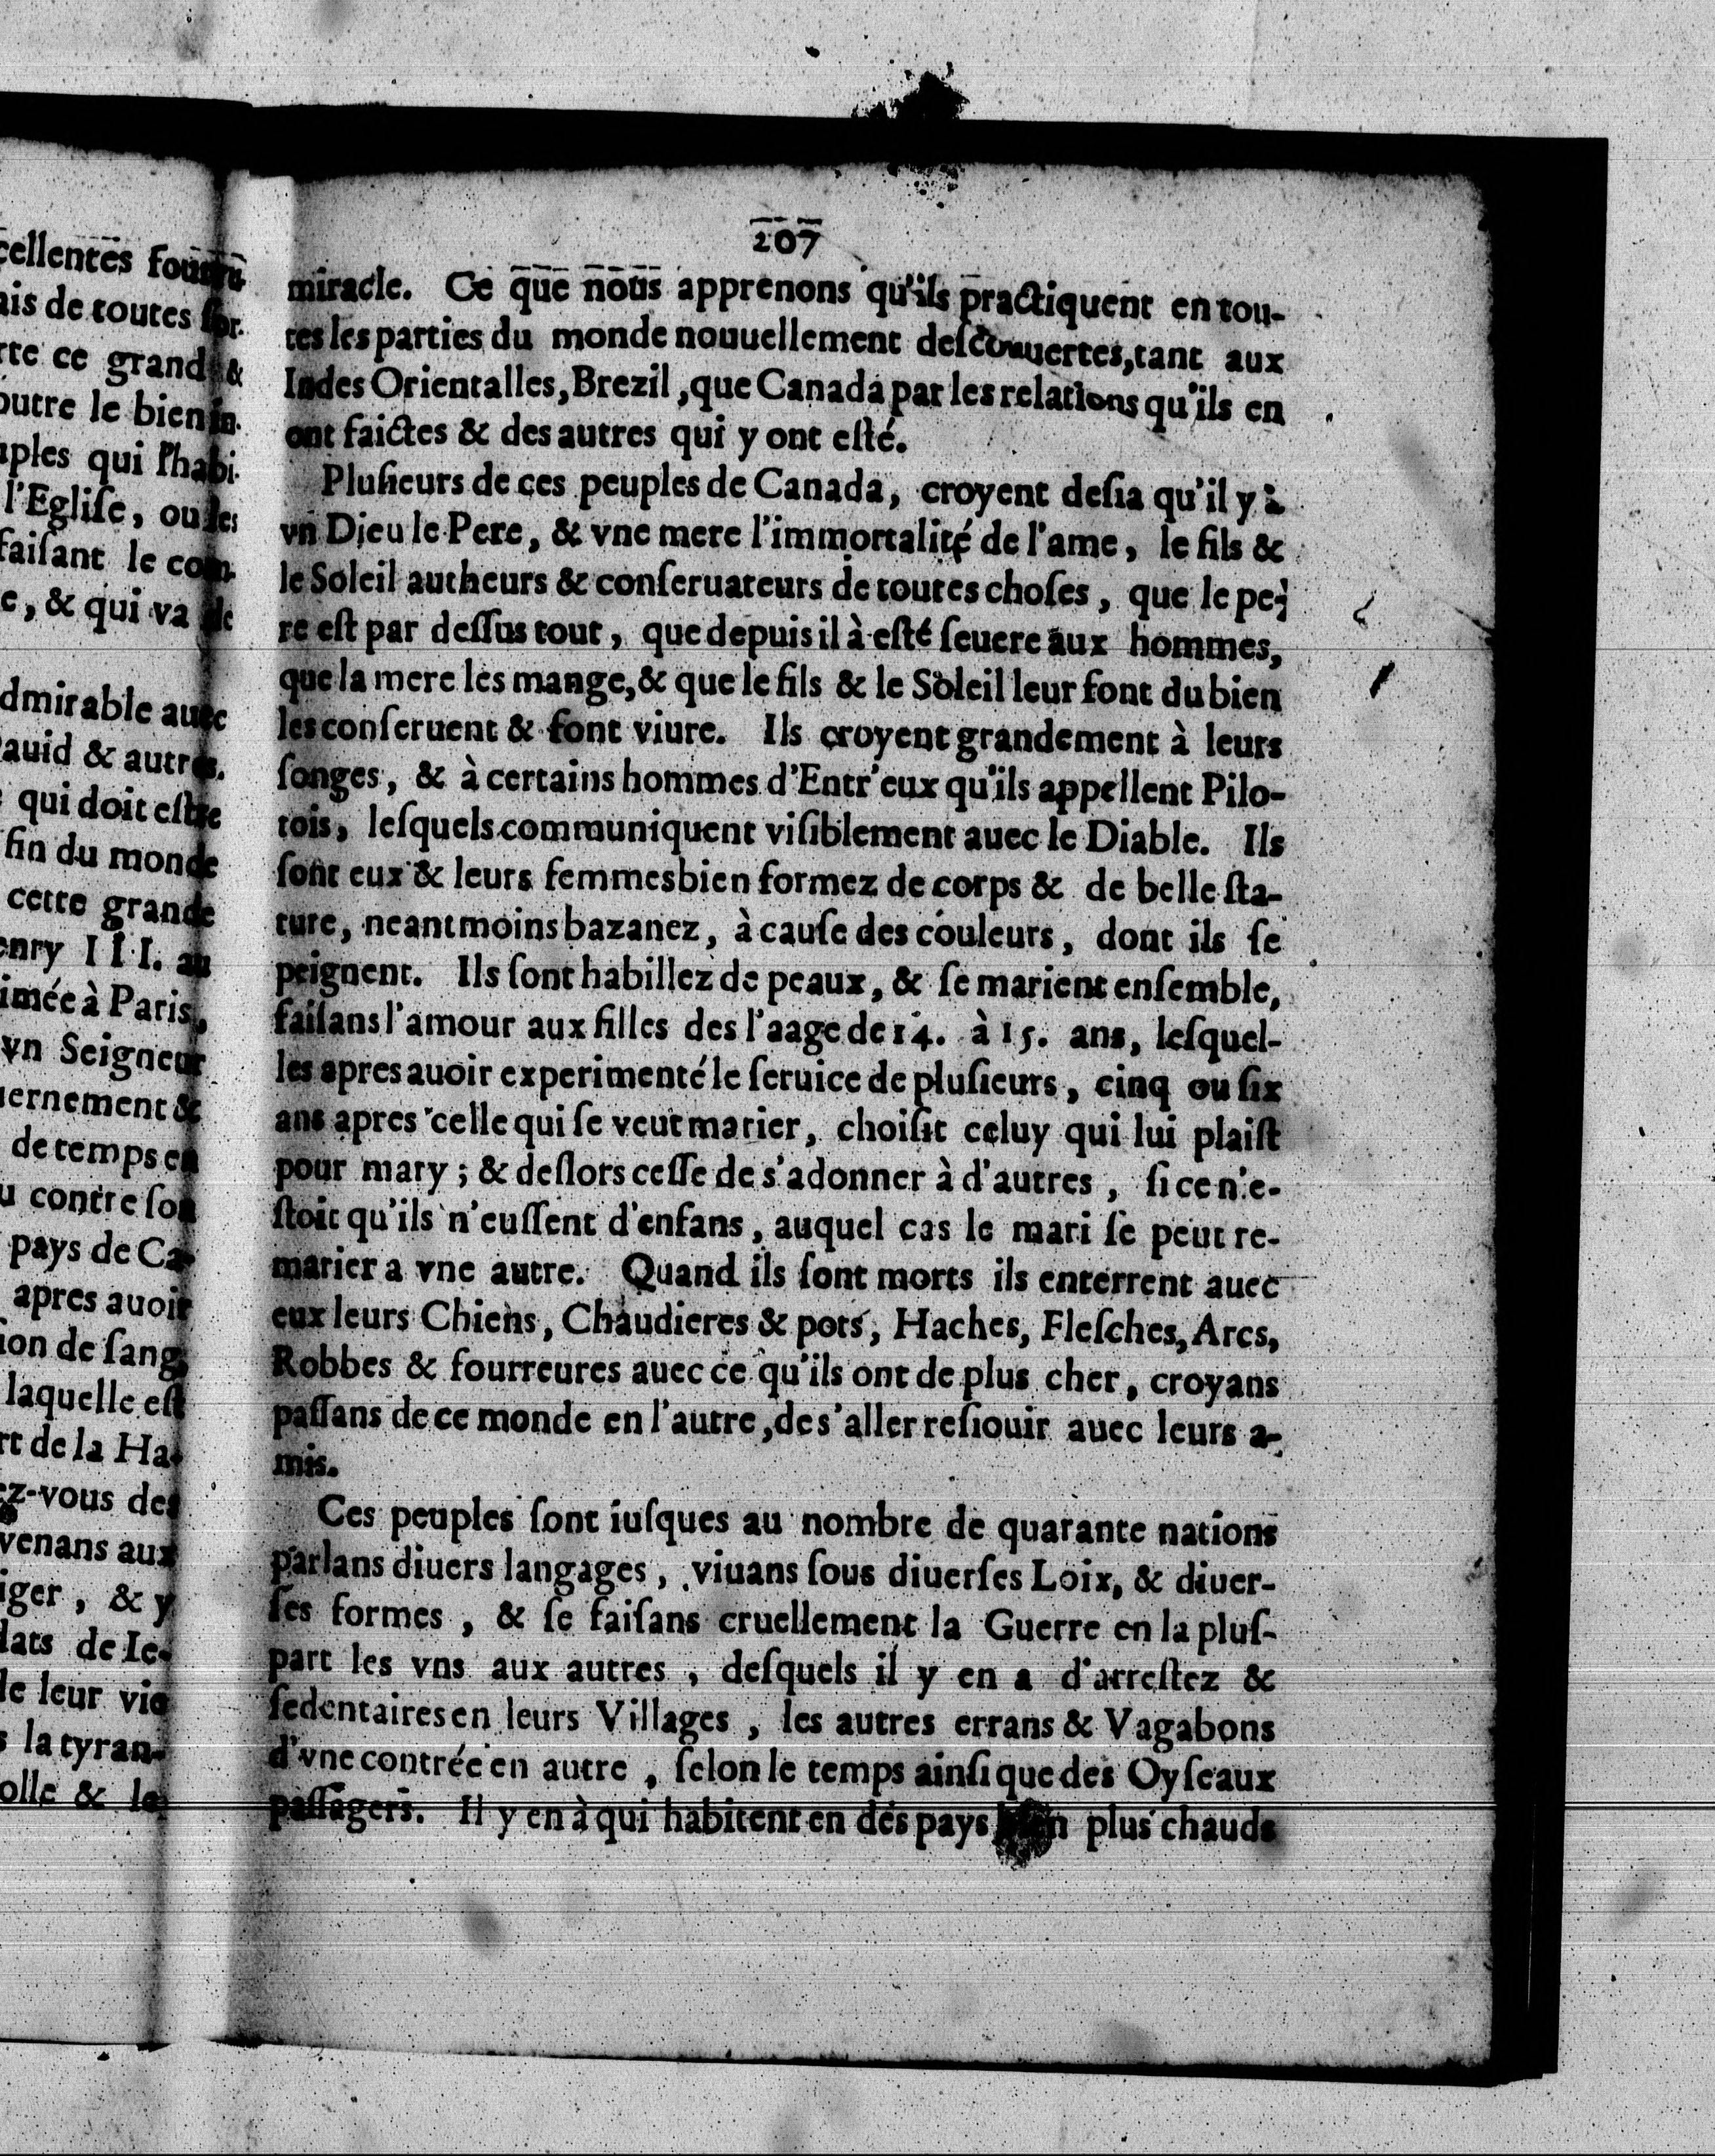 cellentes fournu-
ais de toutes sor-
rte ce grand &
outre le bien in-
uples qui l'habi-
l'Eglise, ou les
faisant le com-
e, & qui va de
dmirable auec
Dauid & autres.
qui doit estre
fin du monde
cette grande
enry III. au
imée à Paris,
vn Seigneur
uernement &
de temps en
u contre son
pays de Ca-
apres auoir
ion de sang,
laquelle est
rt de la Ha-
ez-vous des
venans aux
iger, & y
lats de Ie-
de leur vie
s la tyran-
olle & le
207
miracle. Ce que nous apprenons qu'ils practiquent en tou-
tes les parties du monde nouuellement descouuertes, tant aux
Indes Orientalles, Brezil, que Canada par les relations qu'ils en
ont faictes & des autres qui y ont esté.
Plusieurs de ces peuples de Canada, croyent desia qu'il y à
vn Dieu le Pere, & vne mere l'immortalité de l'ame, le fils &
le Soleil autheurs & conseruateurs de toutes choses, que le pe-
re est par dessus tout, que depuis il à esté seuere aux hommes,
que la mere les mange, & que le fils & le Soleil leur font du bien
les conseruent & font viure. Ils croyent grandement à leurs
songes, & à certains hommes d'Entr'eux qu'ils appellent Pilo-
tois, lesquels communiquent visiblement auec le Diable. Ils
sont eux & leurs femmes bien formez de corps & de belle sta-
ture, neantmoins bazanez, à cause des couleurs, dont ils se
peignent. Ils sont habillez de peaux, & se marient ensemble,
faisans l'amour aux filles des l'aage de 14. à 15. ans, lesquel-
les apres auoir experimenté le seruice de plusieurs, cinq ou six
ans apres celle qui se veut marier, choisit celuy qui lui plaist
pour mary; & deslors cesse de s'adonner à d'autres, si ce n'e-
stoit qu'ils n'eussent d'enfans, auquel cas le mari se peut re-
marier a vne autre. Quand ils sont morts ils enterrent auec
eux leurs Chiens, Chaudieres & pots, Haches, Flesches, Arcs,
Robbes & fourreures auec ce qu'ils ont de plus cher, croyans
passans de ce monde en l'autre, de s'aller resiouir auec leurs a-
mis.
Ces peuples sont iusques au nombre de quarante nations
parlans diuers langages, viuans sous diuerses Loix, & diuer-
ses formes, & se faisans cruellement la Guerre en la plus-
part les vns aux autres, desquels il y en a d'arrestez &
sedentaires en leurs Villages, les autres errans & Vagabons
d'vne contrée en autre, selon le temps ainsi que des Oyseaux
passagers. Il y en à qui habitent en des pays bien plus chauds